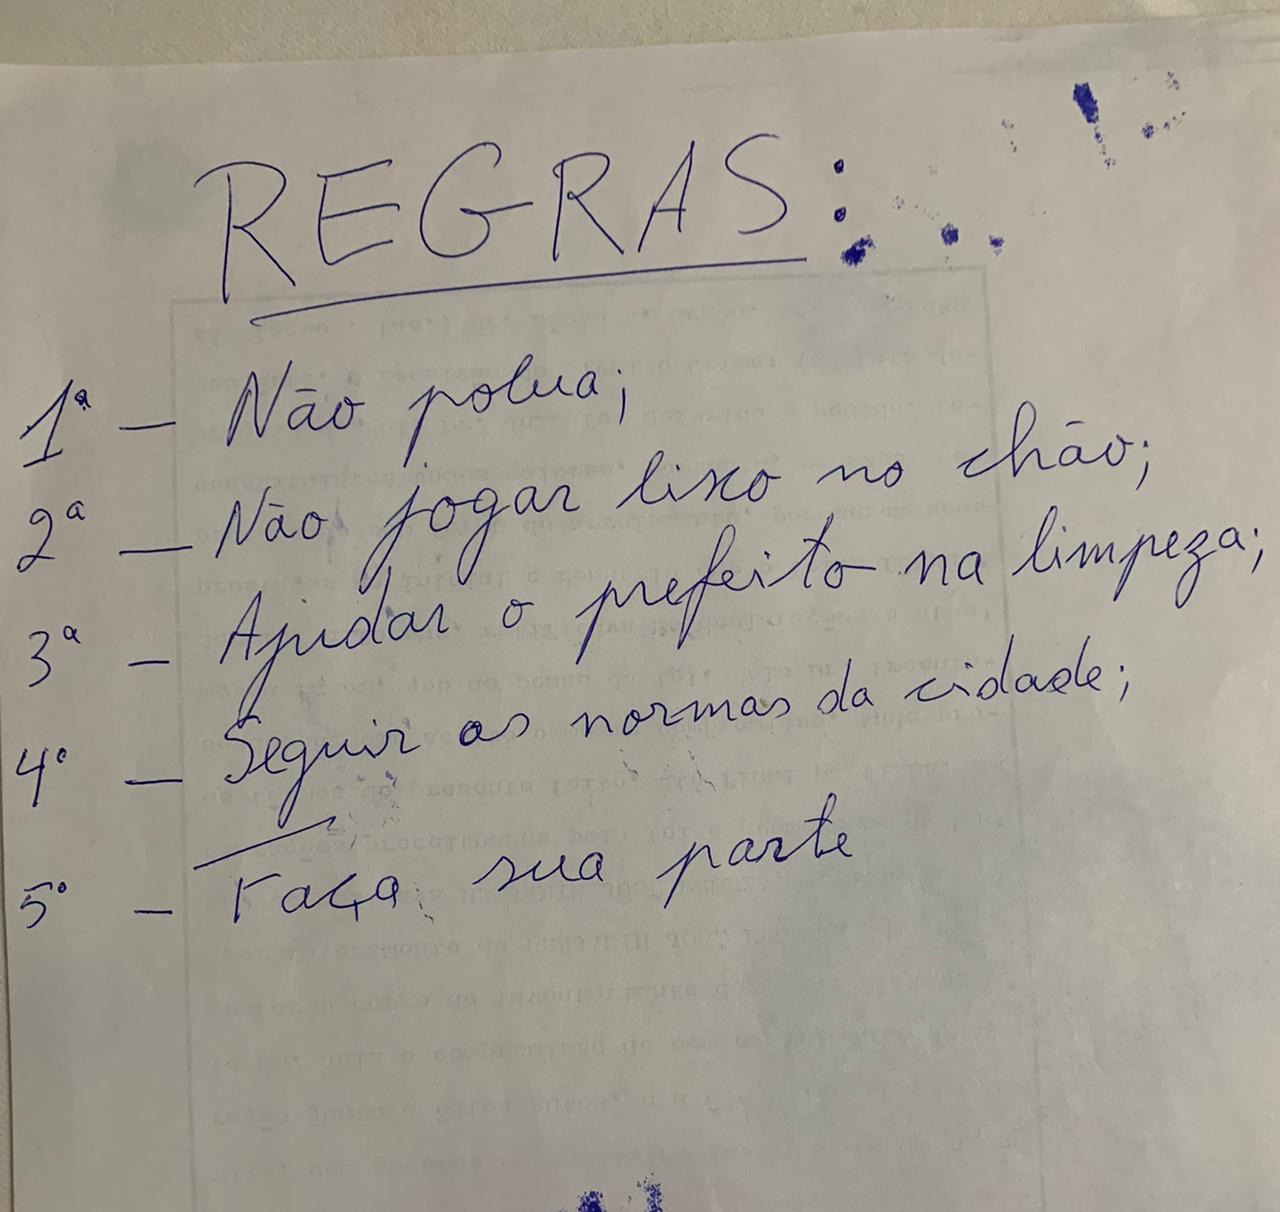 REGRAS:
1ª - Não polua;
2ª - Não jogar lixo no chão;
3ª - Ajudar o prefeito na limpeza;
4º - Seguir as normas da cidade;
5º - Faça sua parte